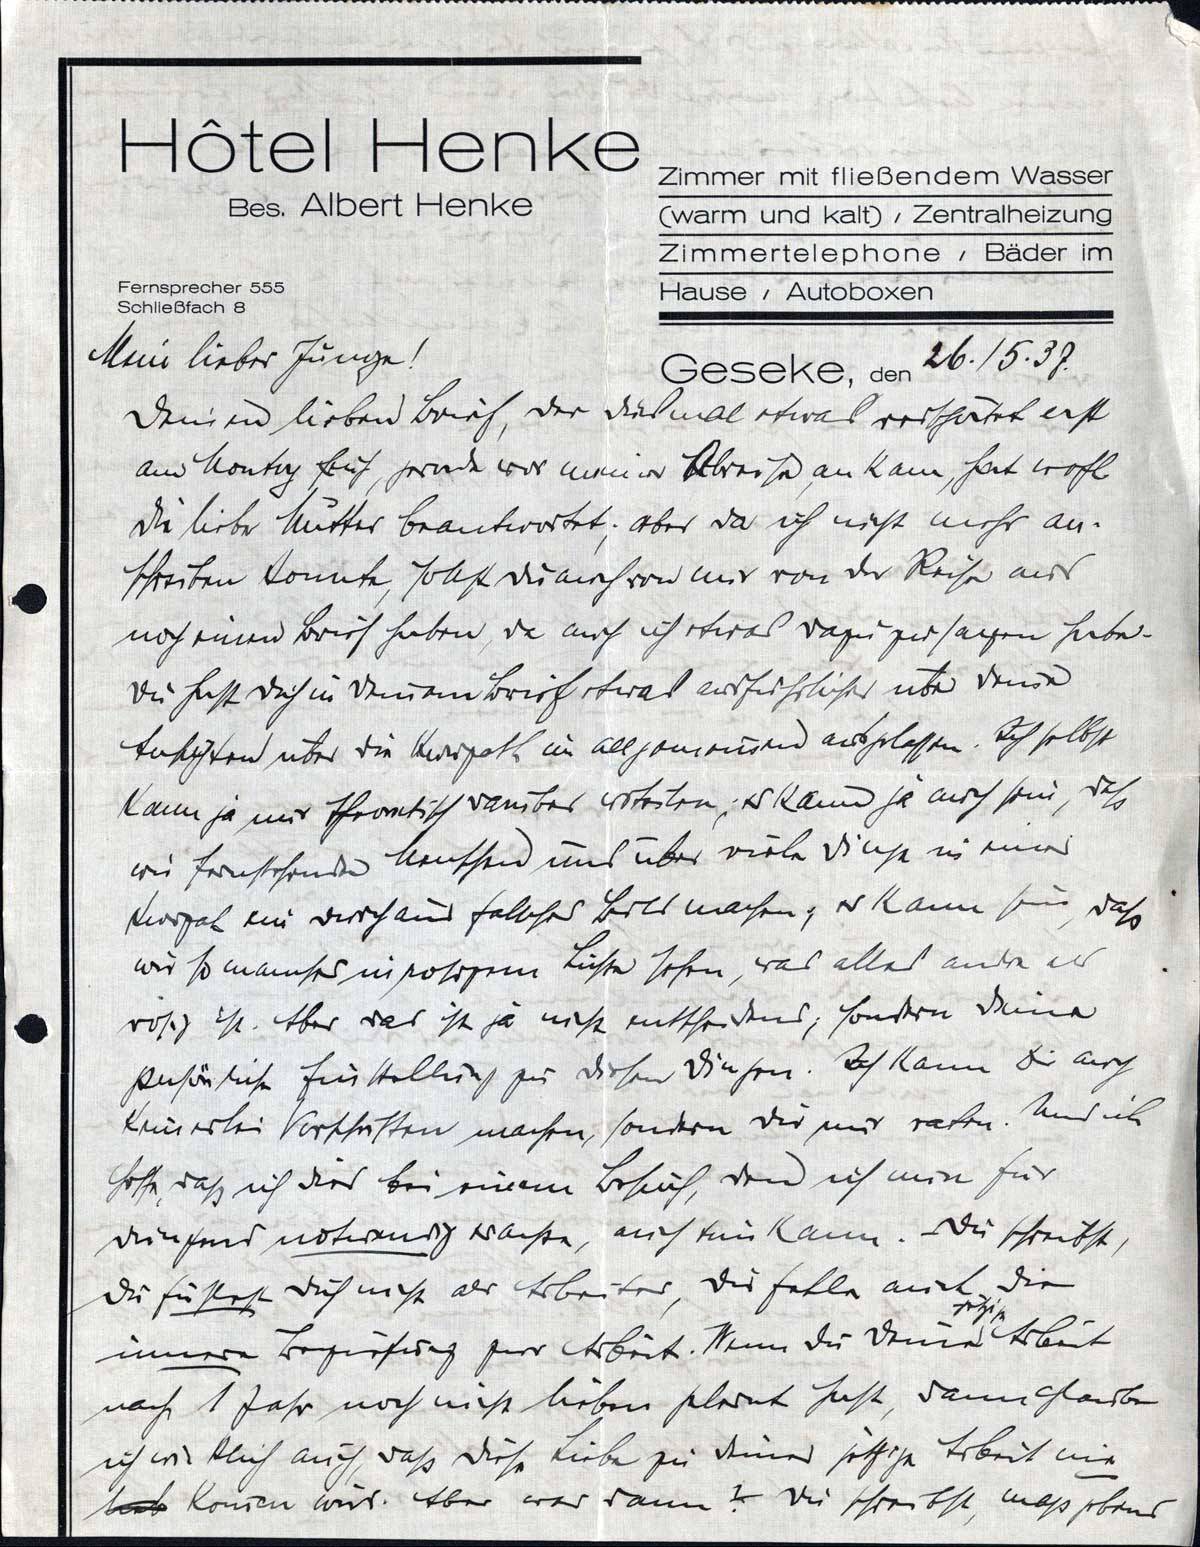 Hôtel Henke
Bes. Albert Henke
Fernsprecher 555
Schließfach 8
Zimmer mit fließendem Wasser
(warm und kalt) / Zentralheizung
Zimmertelephone / Bäder im
Hause / Autoboxen
Geseke, den 26./5.37.
Mein lieber Junge!
Deinen lieben Brief, der diesmal etwas verspätet erst
am Montag früh, gerade vor meiner Abreise, ankam, hat wohl
die liebe Mutter beantwortet; aber da ich nicht mehr an-
schreiben konnte, sollst Du auch von mir von der Reise aus
noch einen Brief haben, da auch ich etwas dazu zu sagen habe.
Du hast Dich in Deinem Brief etwas ausführlicher über Deine
Ansichten über die im allgemeinen ausgelassen. Ich selbst
kann ja nur theoretisch darüber urteilen; es kann ja auch sein, daß
wir fernstehende Menschen uns über viele Dinge in einer
ein durchaus falsches Bild machen; es kann sein, daß
wir so manches in rosigem Lichte sehen, was alles andre als
rosig ist. Aber das ist ja nicht entscheidend; sondern Deine
persönliche Einstellung zu diesen Dingen. Ich kann Dir auch
keinerlei Vorschriften machen, sondern Dir nur raten. Und ich
hoffe, daß ich dies bei einem Besuch, den ich nun für
dringend notwendig erachte, auch tun kann. – Du schreibst,
Du fühlst Dich nicht als Arbeiter, Dir fehle auch die
innere Beziehung zur Arbeit. Wenn Du Deine jetzige Arbeit
nach 1 Jahr noch nicht lieben gelernt hast, dann glaube
ich wirklich auch, daß diese Liebe zu Deiner jetzigen Arbeit nie
kommen wird. Aber was dann? – Du schreibst, maßgebend